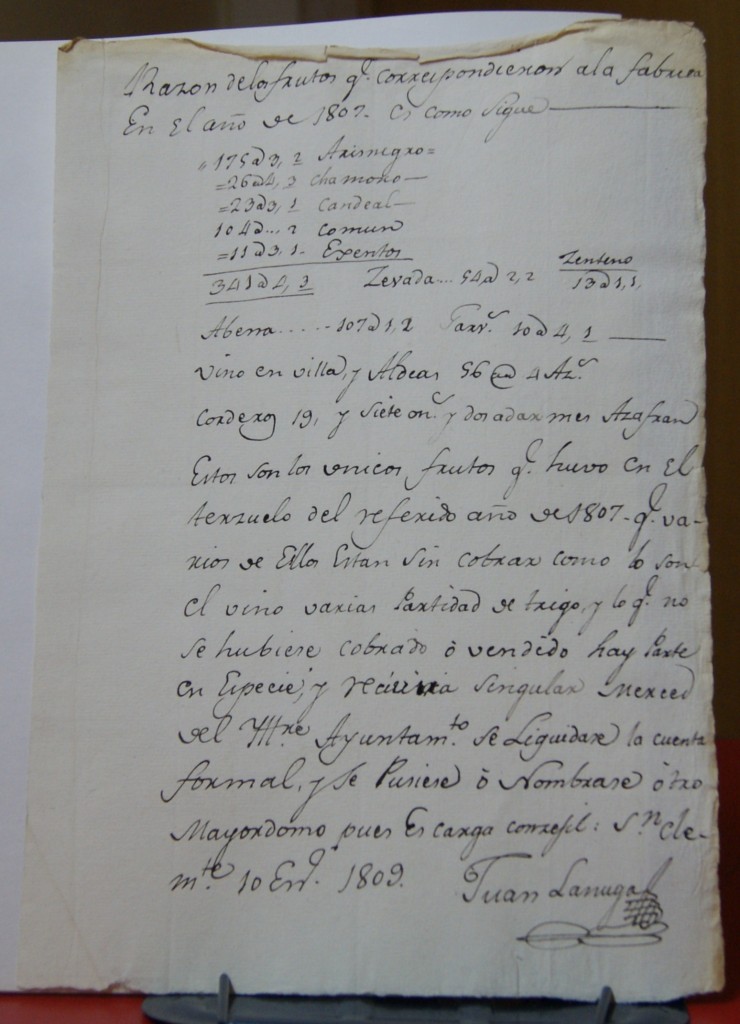 Razon de los frutos q.e correspondieron a la fabrica
En El año de 1807. Es como sigue
175@3, 2 Arisnegro=
=26@4, 3 Chamorro
=23@3, 1 Candeal
104@... 2 Comun
=11@3, 1. Exentos
341@4, 3 Zevada... 54@2, 2 Zenteno 13@1,1,
Abena ...... 107@1, 2 Tarv.s 10@4, 1
vino en villa, y Aldeas 56 @ 4 Az.s
Corderos 19, y siete on.s y dos adarmes Azafran
Estos son los vnicos frutos q.e huvo en El
terzuelo del referido año de 1807. q.e va-
rios de Ellos Estan sin cobrar como lo son
El vino varias Partidad de trigo, y lo q.e no
se hubiese cobrado ò vendido hay Parte
en Especie, y singular merced
del Yll.tre Ayuntam.to se Liquidase la cuenta
formal, y se Pusiese ò Nombrase òtro
Mayordomo pues Es carga conzejil: S.n Cle-
m.te 10 En.o 1809. Juan